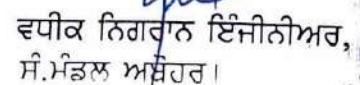 ਵਧੀਕ ਨਿਗਰਾਨ ਇੰਜੀਨੀਅਰ,
ਸੰ.ਮੰਡਲ ਅਬੋਹਰ।